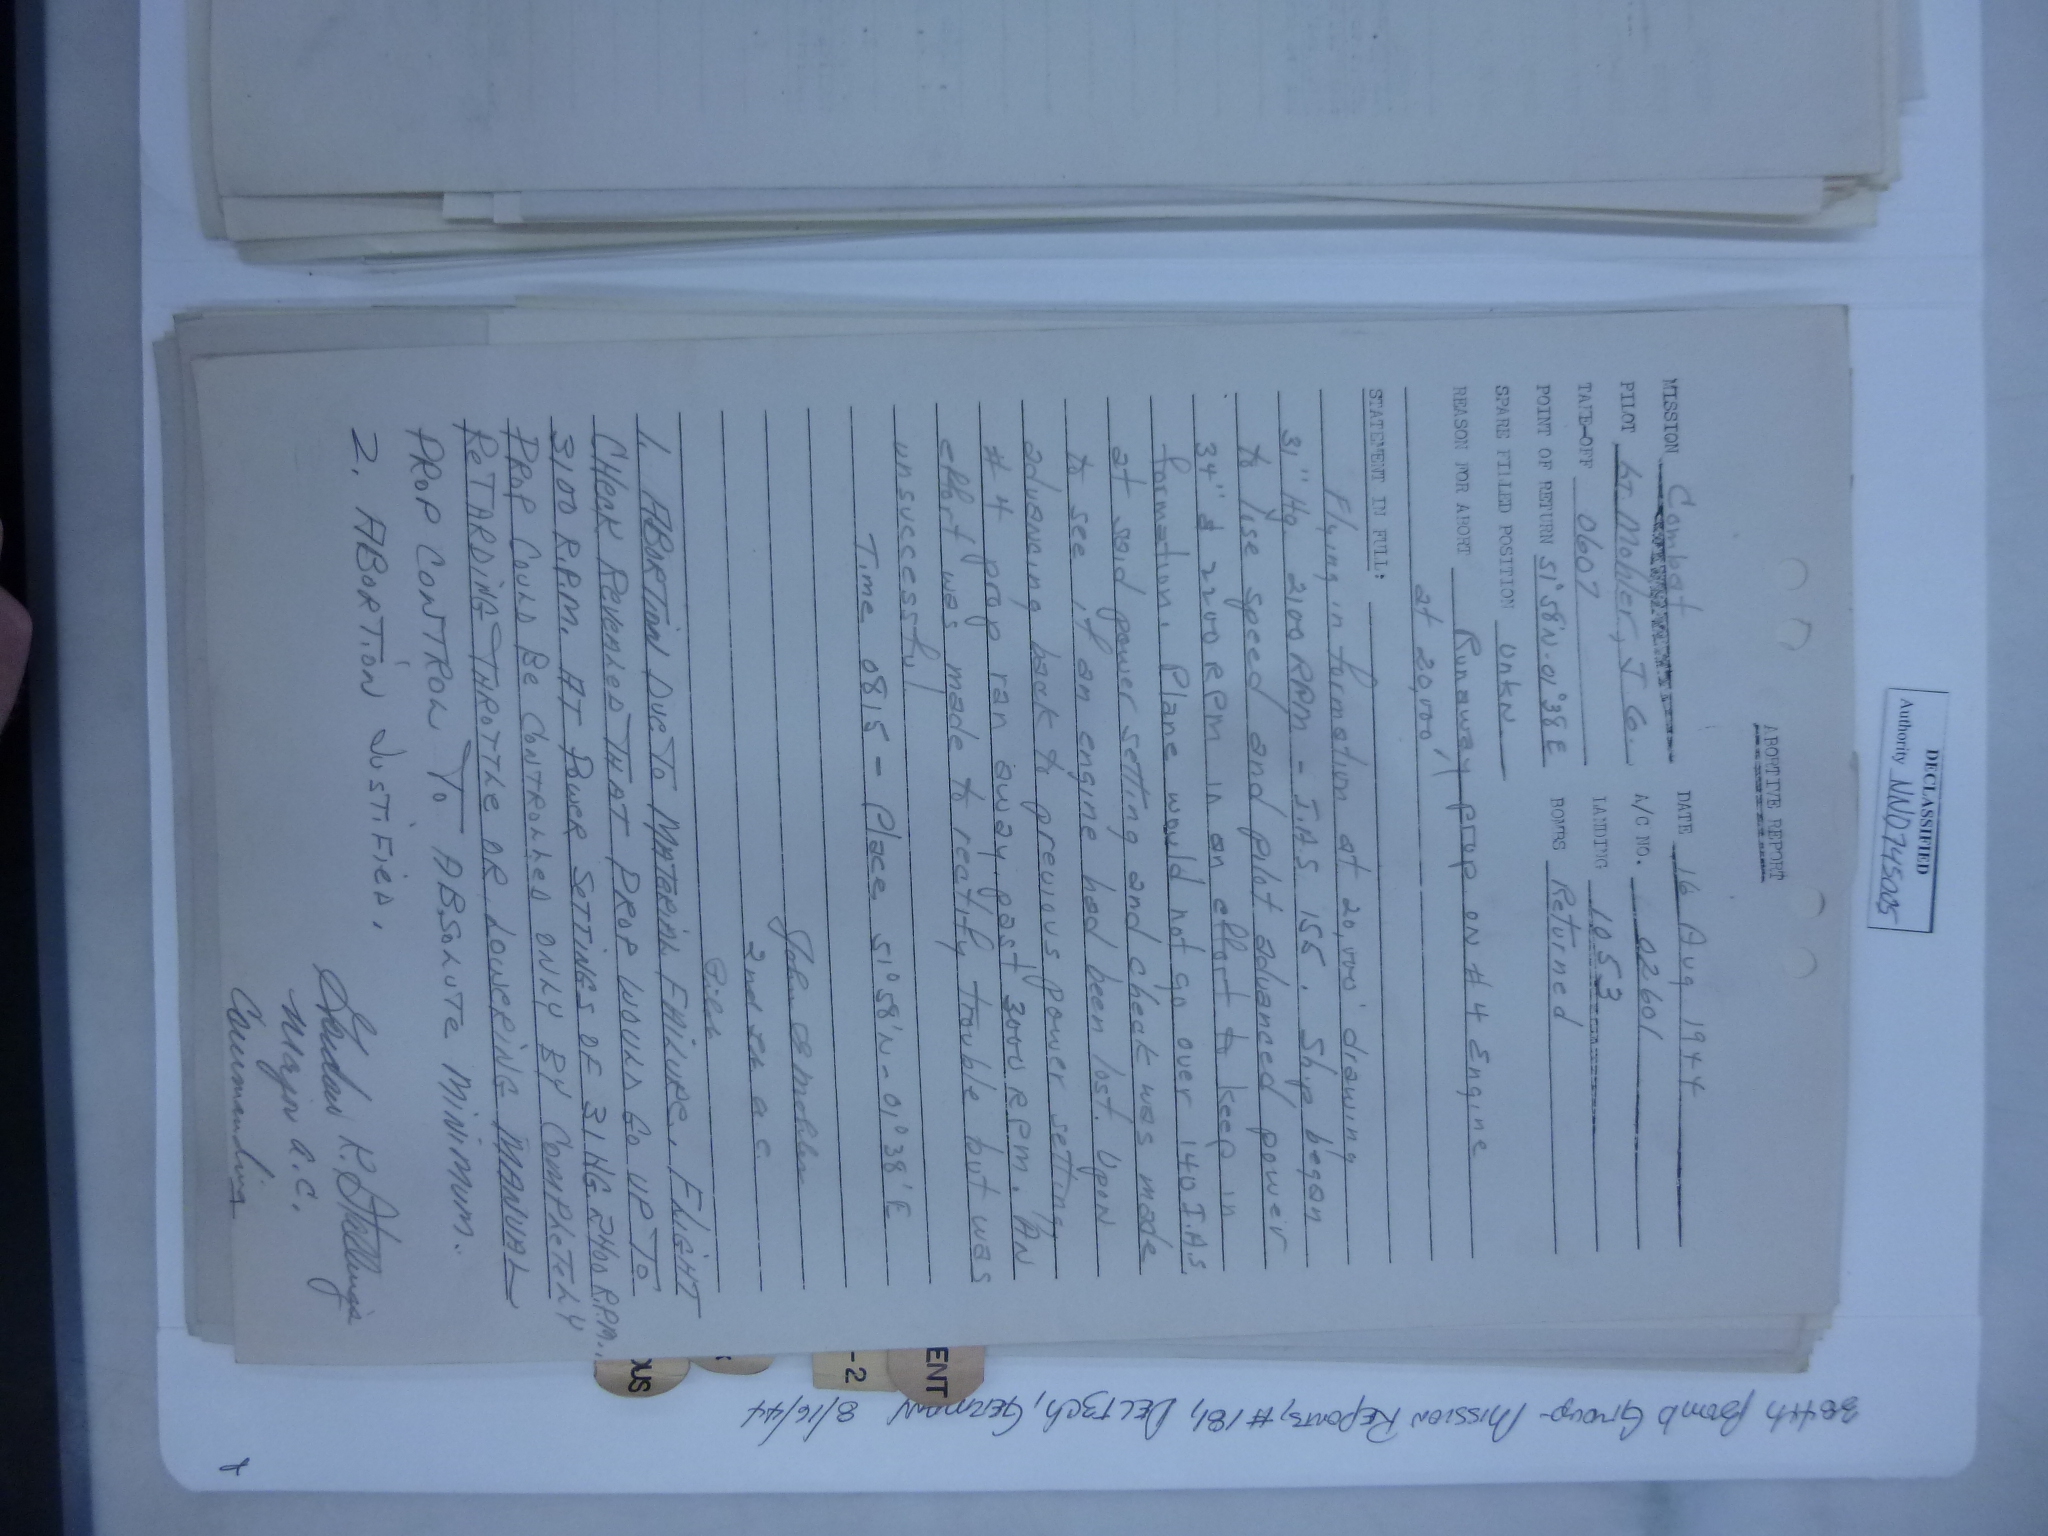 DECLASSIFIED
Authority NND745005
ABORTIVE REPORT
MISSION Combat DATE 16 Aug 1944
PILOT Lt. Mohler, J. G. A/C NO. 02601
TAKE-OFF 0607 LANDING 1053
POINT OF RETURN 51°58'N-01°38'E BOMBS Returned
SPARE FILLED POSITION Unkn
REASON FOR ABORT Runaway prop on #4 Engine
at 20,000'
STATEMENT IN FULL:
Flying in formation at 20,000' drawing
31" Hg. 2100 RPM - I.A.S 155. Ship began
to lose speed and pilot advanced power
34" & 2200 RPM in an effort to keep in
formation. Plane would not go over 140 I.A.S.
at said power setting and check was made
to see if an engine had been lost. Upon
advancing back to previous power setting,
#4 prop ran away past 3000 RPM. AN
effort was made to rectify trouble but was
unsuccessful
Time 0815 - Place 51°58'N - 01°38'E
John G Mohler
2nd Lt a.c.
Pilot
1. ABORTION DUE TO MATERIAL FAILURE. FLIGHT
CHECK REVEALED THAT PROP WOULD GO UP TO
3100 R.P.M. AT POWER SETTINGS OF 31 HG. 2400 R.P.M..
PROP COULD BE CONTROLLED ONLY BY COMPLETELY
RETARDING THROTTLE OR LOWERING MANUAL
PROP CONTROL TO ABSOLUTE MINIMUM.
2. ABORTION JUSTIFIED.
R. Stallings
Major a.c.
Commanding
ENT
-2
XUS
384th Bomb Group - Mission Reports, #181, DELITZCH, GERMANY 8/16/44